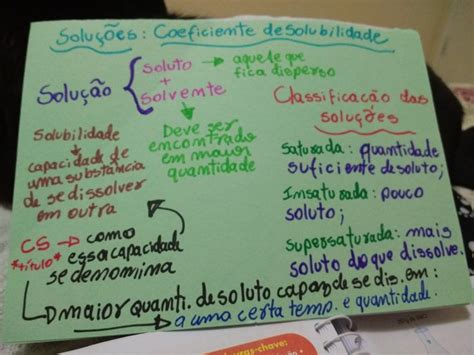 Soluções: Coeficiente de solubilidade
Solução { soluto + solvente
→ aquele que
fica disperso
Deve ser
encontrado
em maior
quantidade
Solubilidade
capacidade de
uma substância
de se dissolver
em outra
CS → como
essa capacidade
se denomina
*título*
→ maior quanti. de soluto capaz de se dis. em:
→ a uma certa temp. e quantidade.
Classificação das
soluções
Saturada: quantidade
suficiente de soluto;
Insaturada: pouco
soluto;
Supersaturada: mais
soluto do que dissolve.
vras-chave: